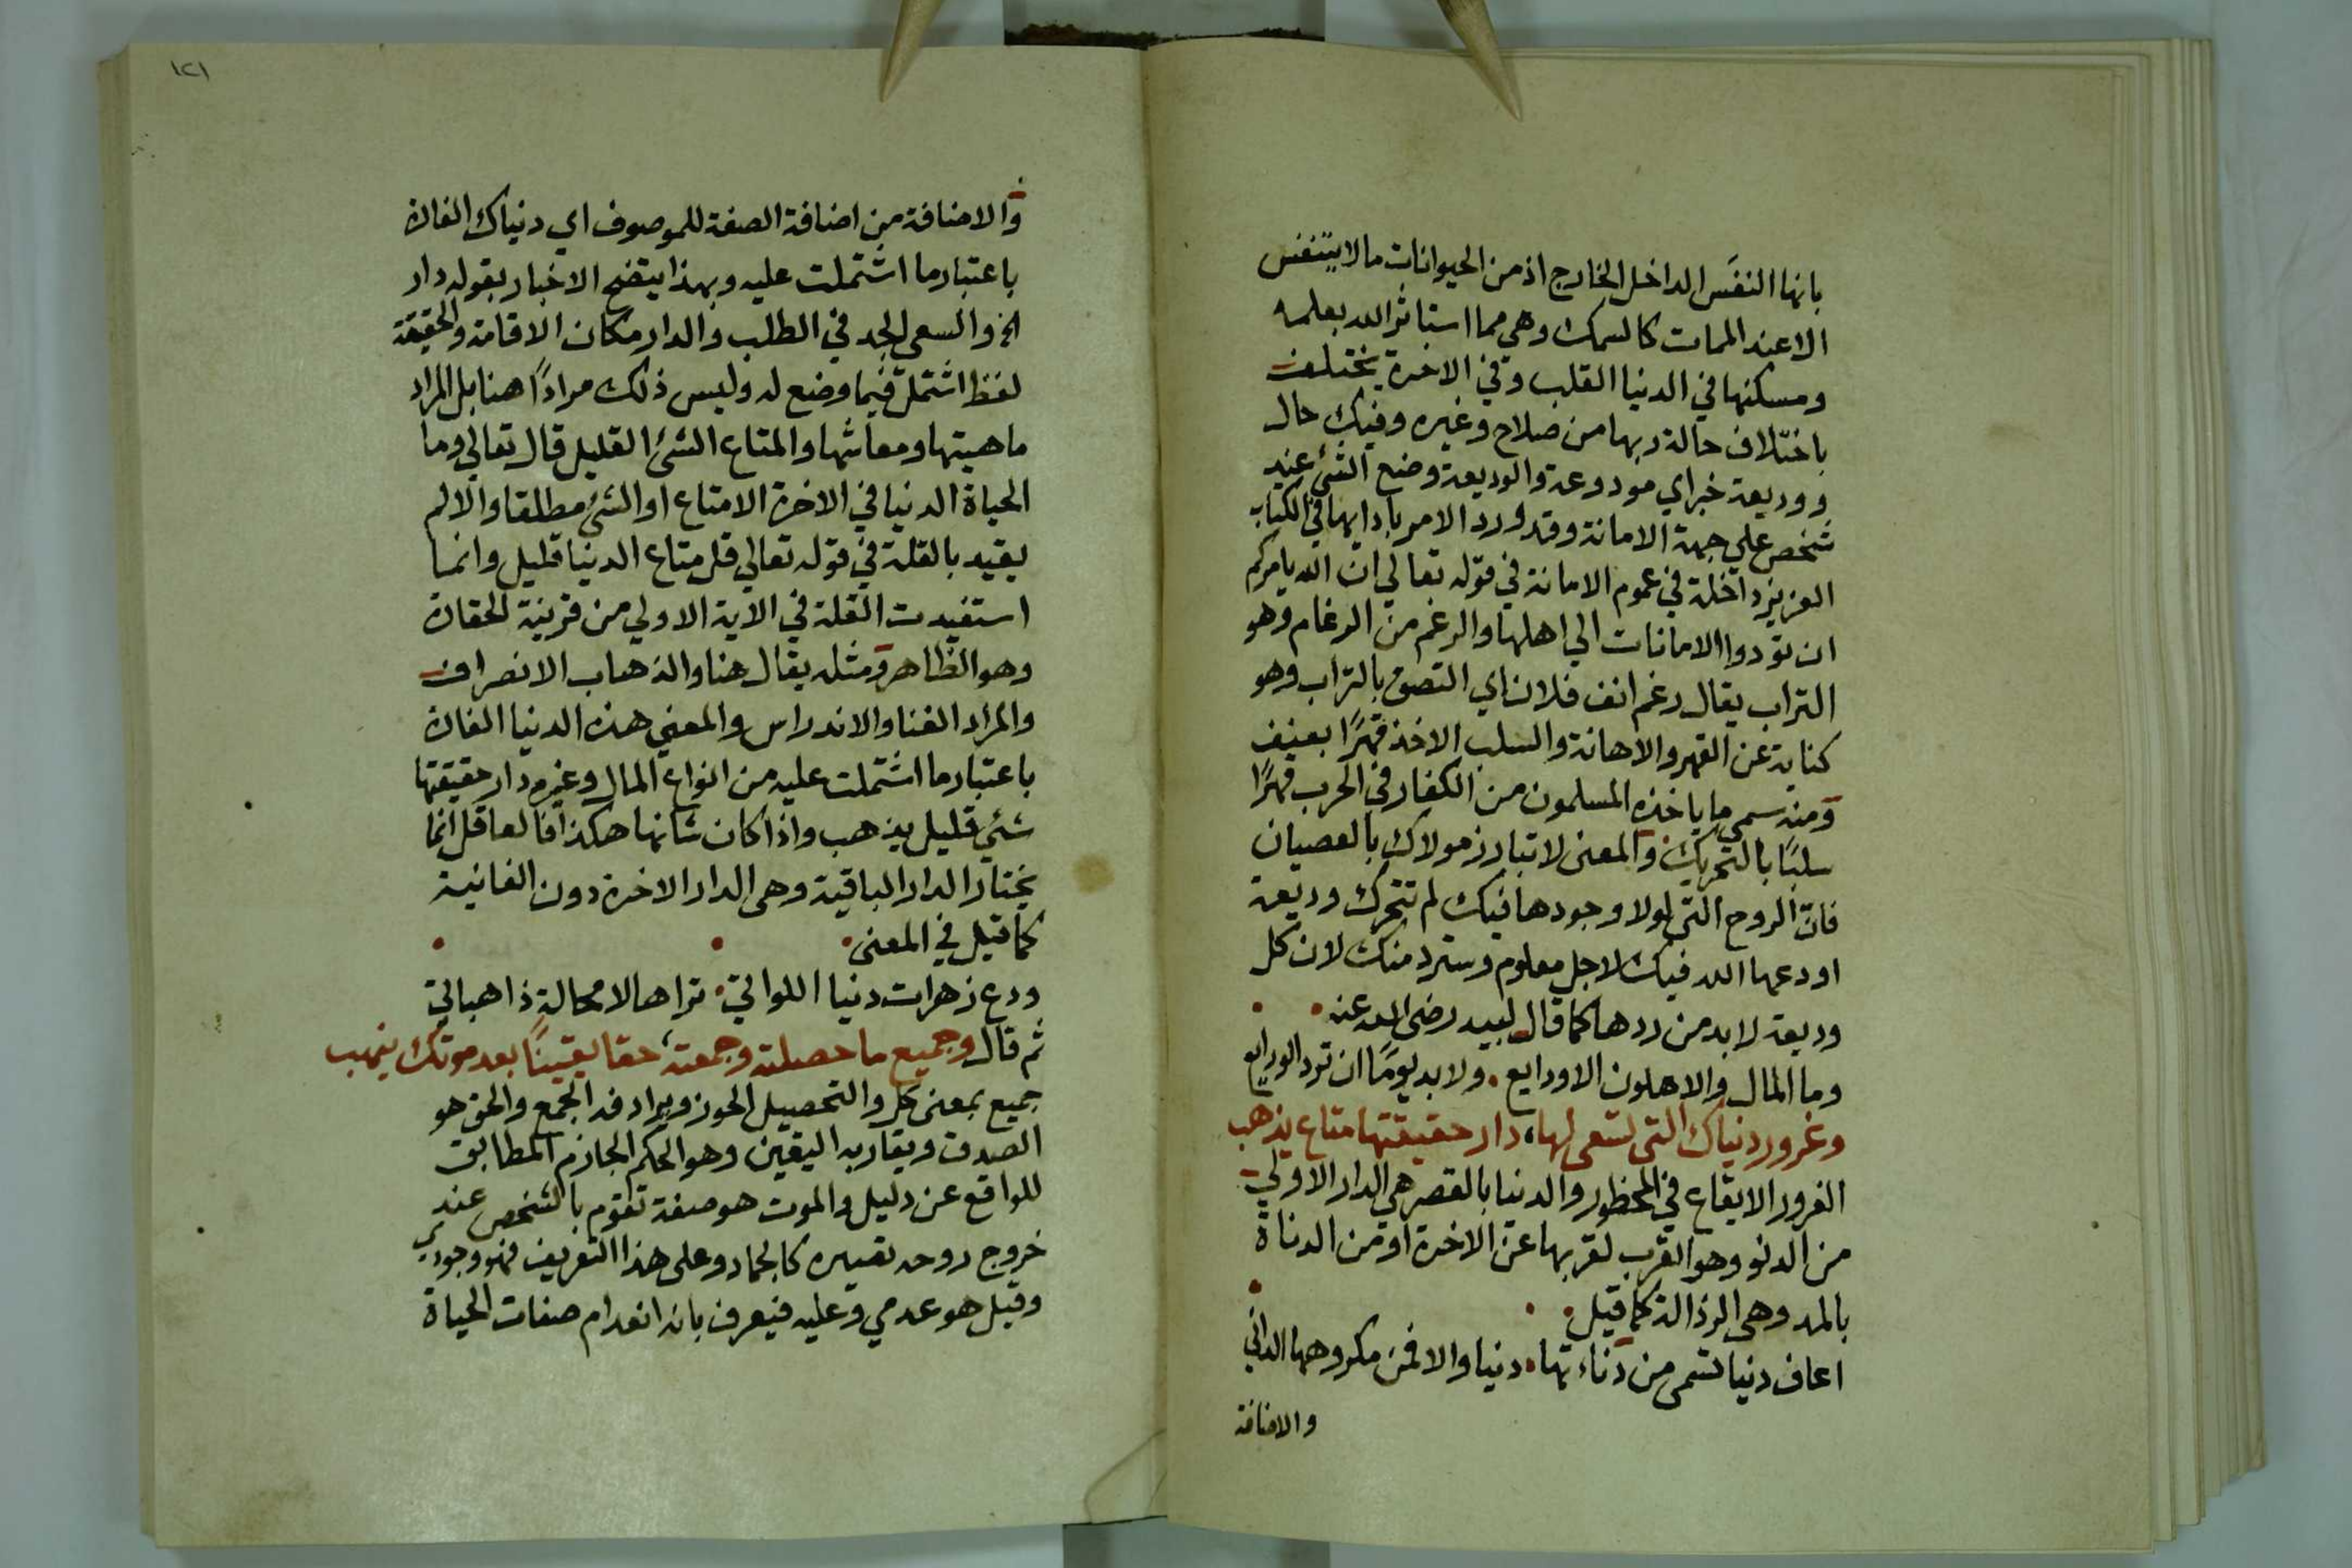 بانها النفَس الداخل الخارج اذ من الحيوانات ما لا يتنفس
الا عند الممات كالسمك وهي مما استاثر الله بعلمه
ومسكنها في الدنيا القلب وفي الاخرة يختلف
باختلاف حالة ربها من صلاح وغيره وفيك حال
ووديعة خبر اي مودوعة والوديعة وضع الشئ عند
شخص علي جهة الامانة وقد ورد الامر بادايها في الكتاب
العزيز داخلة في عموم الامانة في قوله تعالي ان الله يامركم
ان تؤدوا الامانات الي اهلها والرغم من الرغام وهو
التراب يقال رغم انف فلان اي التصق بالتراب وهو
كناية عن القهر والاهانة والسلب الاخذ قهرًا بعنف
ومنه سمي ما ياخذه المسلمون من الكفار في الحرب قهرًا
سلبًا بالتحريك والمعنى لا تبارز مولاك بالعصيان
فانّ الروح التي لولا وجودها فيك لم تتحرك وديعة
اودعها الله فيك لاجل معلوم وسترد منك لان كل
وديعة لا بد من ردها كما قال لبيد رضى الله عنه
وما المال والاهلون الا ودايع . ولا بد يومًا ان ترد الودايع
وغرور دنياك التى تسعى لها، دار حقيقتها متاع يذهب
الغرور الايقاع في المحظور والدنيا بالقصر هي الدار الاولي
من الدنو وهو القرب لقربها عن الاخرة او من الدناة
بالمد وهى الرذالة كما قيل
اعاف دنيا تسمى من دناءتها . دنيا والا فمن مكروهها الداني
والاضافة
١٢١
والاضافة من اضافة الصفة للموصوف اي دنياك الغارة
باعتبار ما اشتملت عليه وبهذا يتضح الاخبار بقوله دار
الخ والسعي الجد في الطلب والدار مكان الاقامة والحقيقة
لفظ اشتمل فيما وضع له وليس ذلك مرادًا هنا بل المراد
ماهيتها ومعاشها والمتاع الشئ القليل قال تعالي وما
الحياة الدنيا في الاخرة الا متاع او الشئ مطلقا والا لم
يقيد بالقلة في قوله تعالي قل متاع الدنيا قليل وانما
استفيدت القلة في الاية الاولي من قرينة الحقارة
وهو الظاهر ومثله يقال هنا والذهاب الانصراف
والمراد الفنا والاندراس والمعني هذه الدنيا الغارة
باعتبار ما اشتملت عليه من انواع المال وغيره دار حقيقتها
شئ قليل يذهب واذا كان شانها هكذا فالعاقل انما
يختار الدار الباقية وهي الدار الاخرة دون الفانية
كما قيل في المعنى
ودع زهرات دنيا اللوالتي . تراها لا محالة ذاهباتي
ثم قال وجميع ما حصلته وجمعته، حقا يقينًا بعد موتك ينهب
جميع بمعنى كل والتحصيل الحوز ويرادفه الجمع والحق هو
الصدق ويقاربه اليقين وهو الحكم الجازم المطابق
للواقع عن دليل والموت هو صفة تقوم بالشخص عند
خروج روحه تصيره كالجماد وعلى هذا التعريف فهو وجودي
وقيل هو عدمي وعليه فيعرف بانه انعدام صفات الحياة